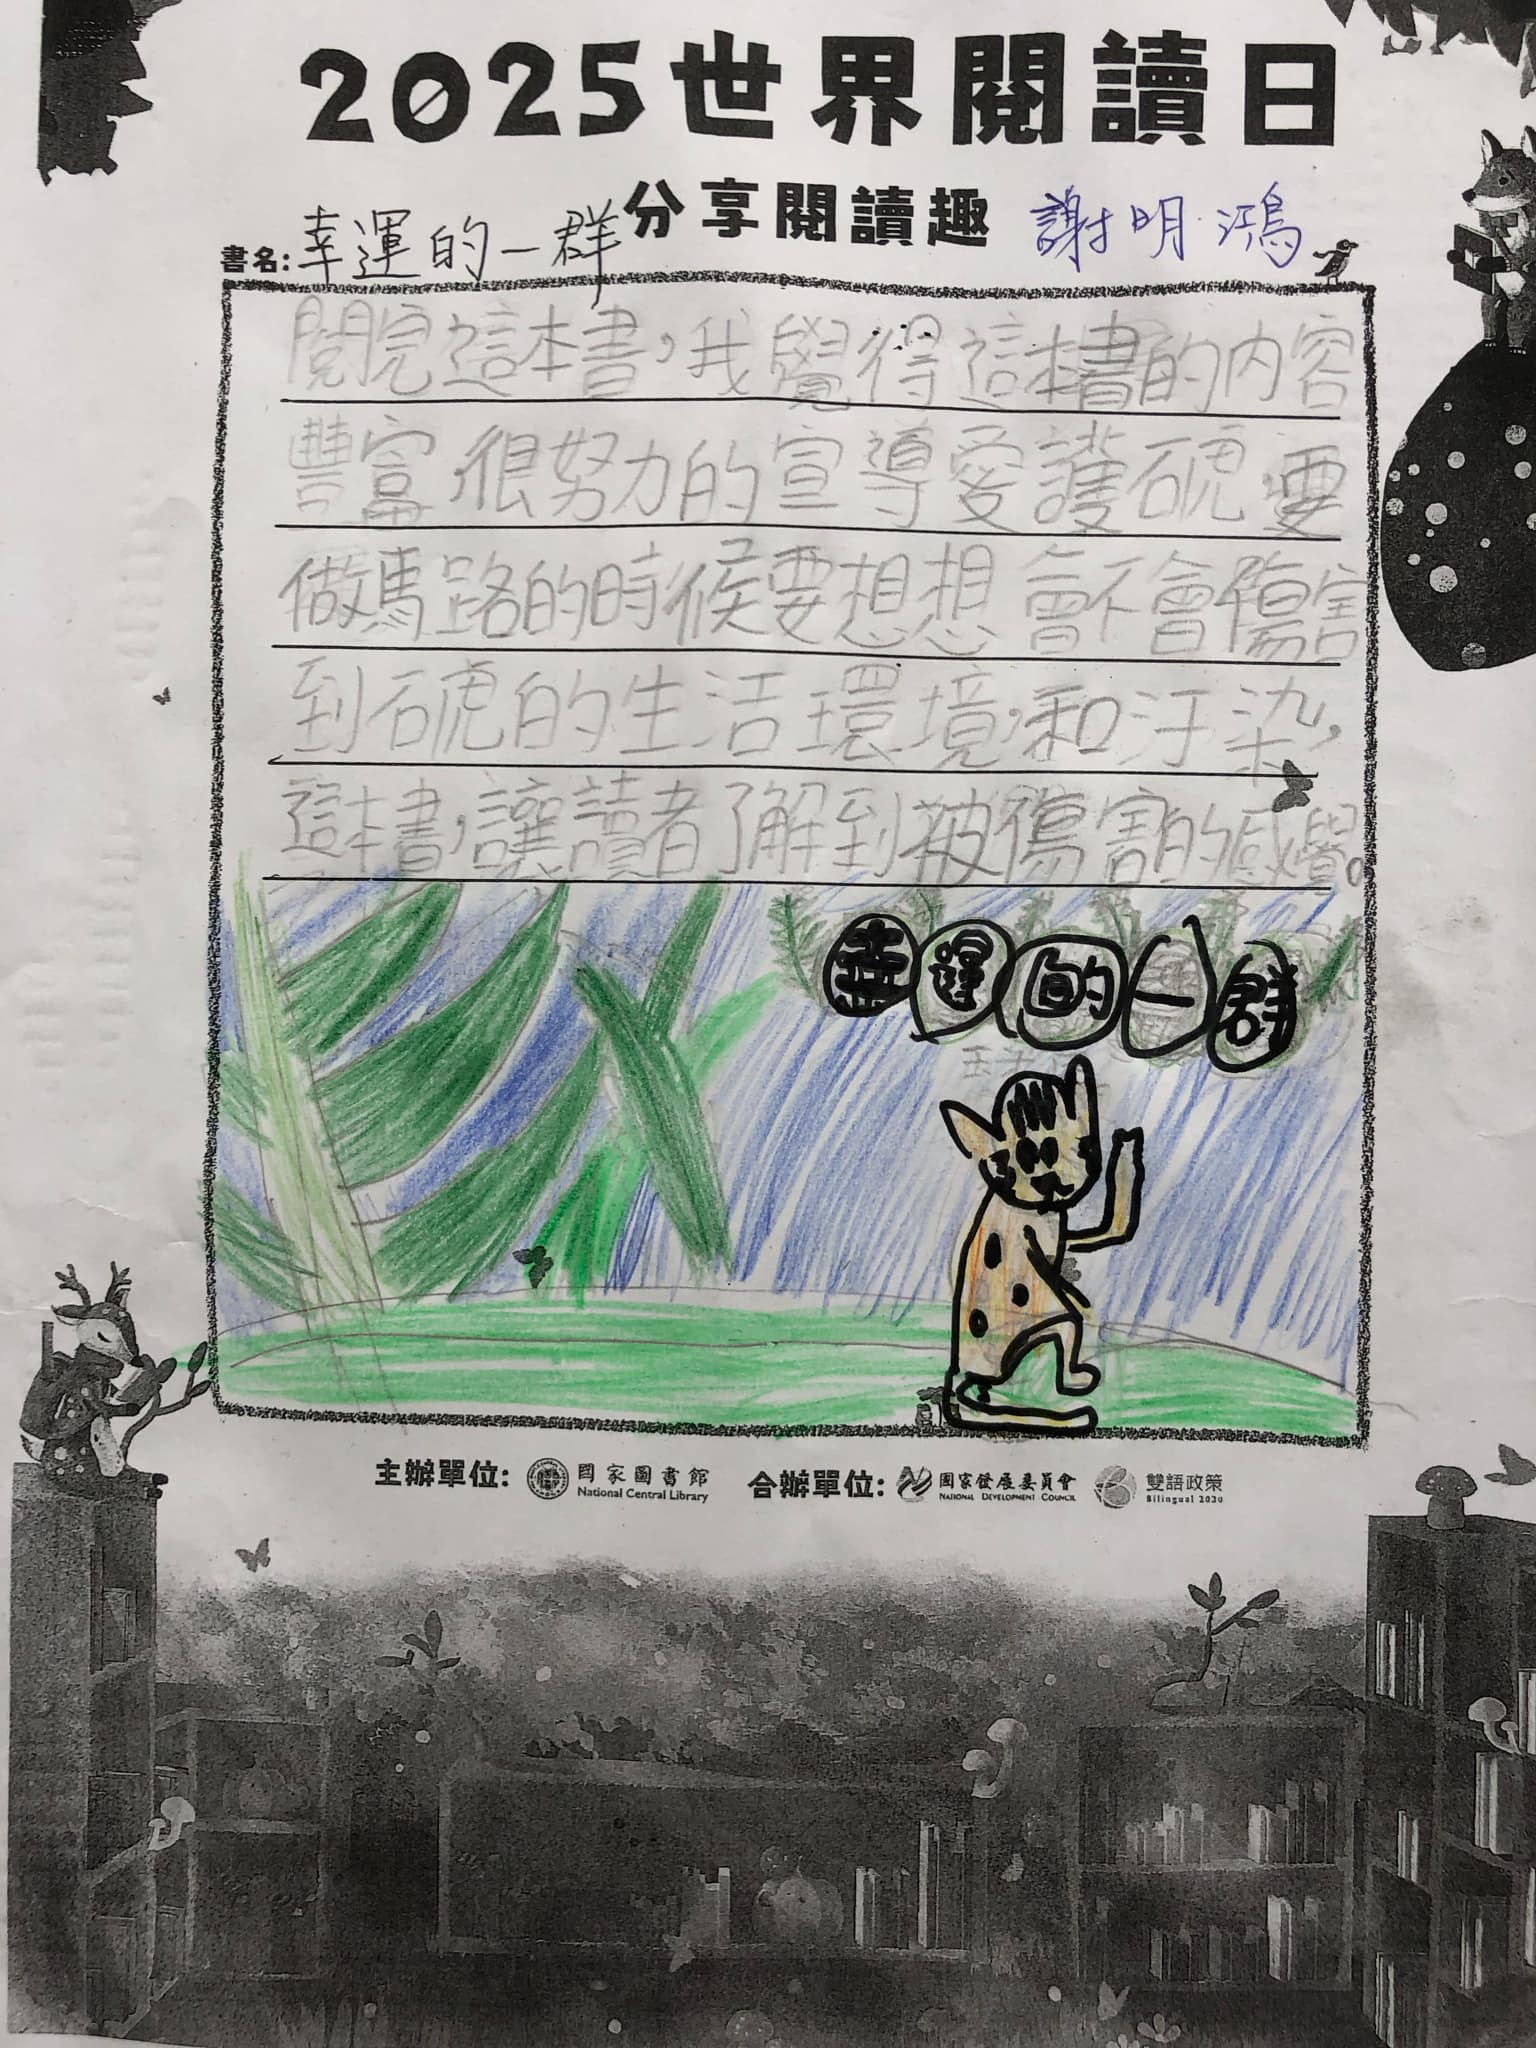 2025世界閱讀日
分享閱讀趣 謝明鴻
書名:幸運的一群
閱完這本書,我覺得這本書的內容
豐富,很努力的宣導愛護石虎,要
做馬路的時候要想想會不會傷害
到石虎的生活環境,和汙染,
這本書,讓讀者了解到被傷害的感覺。
幸運的一群
主辦單位: 國家圖書館 合辦單位: 國家發展委員會 雙語政策
National Central Library NATIONAL DEVELOPMENT COUNCIL Bilingual 2030